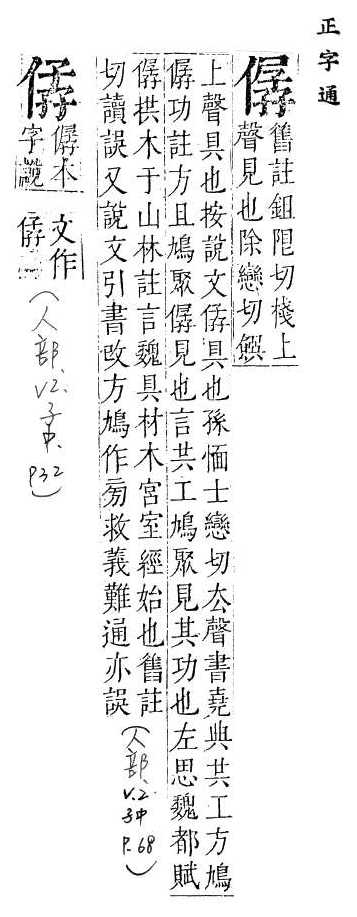 正字通
僝 舊註鉏限切棧上
聲見也除戀切饌
上聲具也按說文具也孫愐士戀切厺聲書堯典共工方鳩
僝功註方且鳩聚僝見也言共工鳩聚見其功也左思魏都賦
僝拱木于山林註言魏具材木宮室經始也舊註
切讀誤又說文引書改方鳩作㫄救義難通亦誤
(人部.V.2.子中 P.68)
僝本
字說
文作
(人部.V2.子中.P32)